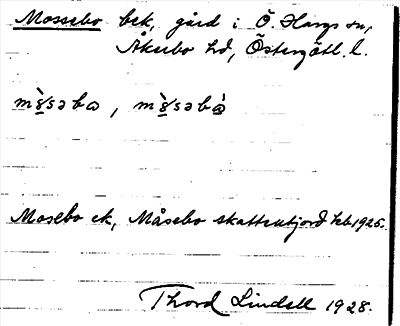 Mossebo bek, gård i Ö. Hargs sn,
Åkerbo hd, Östergötl. l.
Mosebo ek, Måsebo skatteutjord hb 1925.
Thord Lindell 1928.